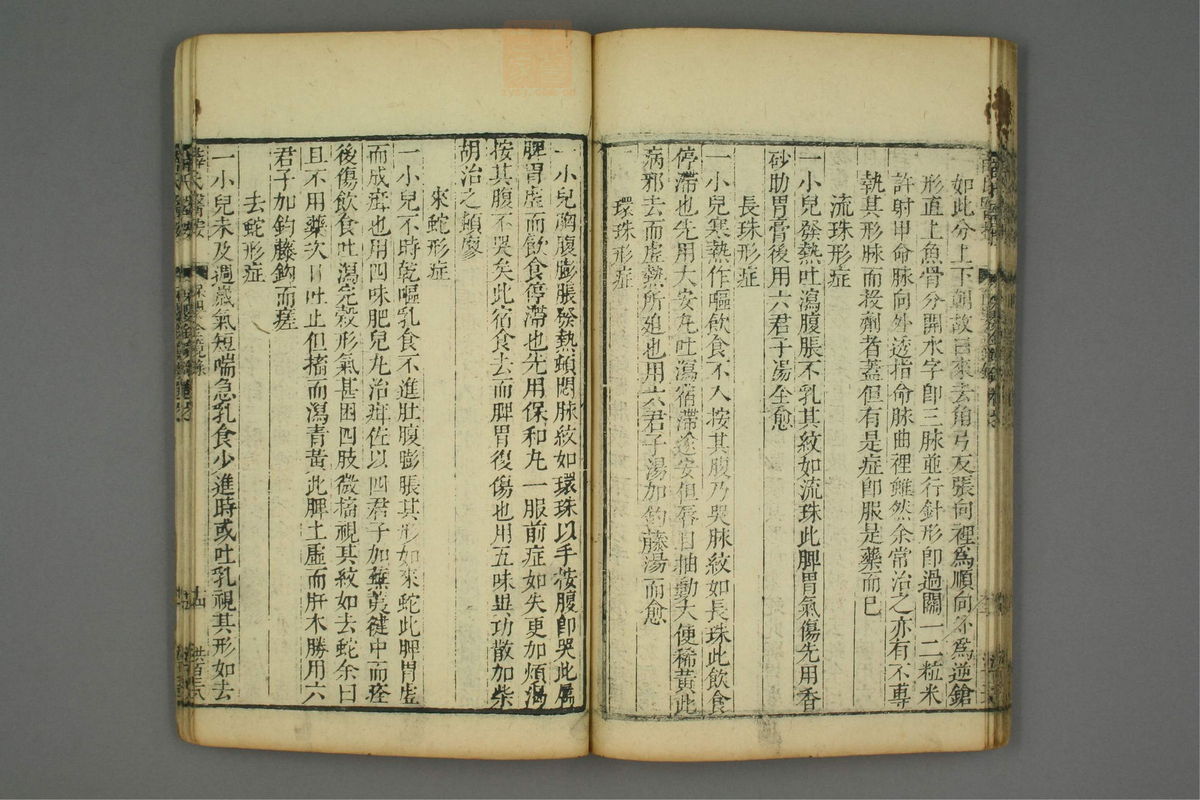 如此分上下朝故曰來去角弓反張向裡為順向外為逆鎗
形直上魚骨分開水字即三脉並行針形即過關一二粒米
許射甲命脉向外透指命脉曲裡雖然余常治之亦有不專
執其形脉而投劑者蓋但有是症即服是藥而已
流珠形症
一小兒發熱吐瀉腹脹不乳其紋如流珠此脾胃氣傷先用香
砂助胃膏後用六君子湯全愈
長珠形症
一小兒寒熱作嘔飲食不入按其腹乃哭脉紋如長珠此飲食
停滯也先用大安丸吐瀉宿滯遂安但唇目抽動大便稀黃此
病邪去而虛熱所迫也用六君子湯加釣藤湯而愈
環珠形症
一小兒胸腹膨脹發熱頓悶脉紋如環珠以手按腹即哭此屬
脾胃虛而飲食停滯也先用保和丸一服前症如失更加煩渴
按其腹不哭矣此宿食去而脾胃復傷也用五味異功散加柴
胡治之頓廖
來蛇形症
一小兒不時乾嘔乳食不進肚腹膨脹其形如來蛇此脾胃虛
而成疳也用四味肥兒丸治疳佐以四君子加蕪荑健中而痊
後傷飲食吐瀉完穀形氣甚困四肢微搐視其紋如去蛇余曰
且不用藥次日吐止但搐而瀉青黃此脾土虛而肝木勝用六
君子加釣藤鈎而瘥
去蛇形症
一小兒未及週歲氣短喘急乳食少進時或吐乳視其形如去
薛氏醫案